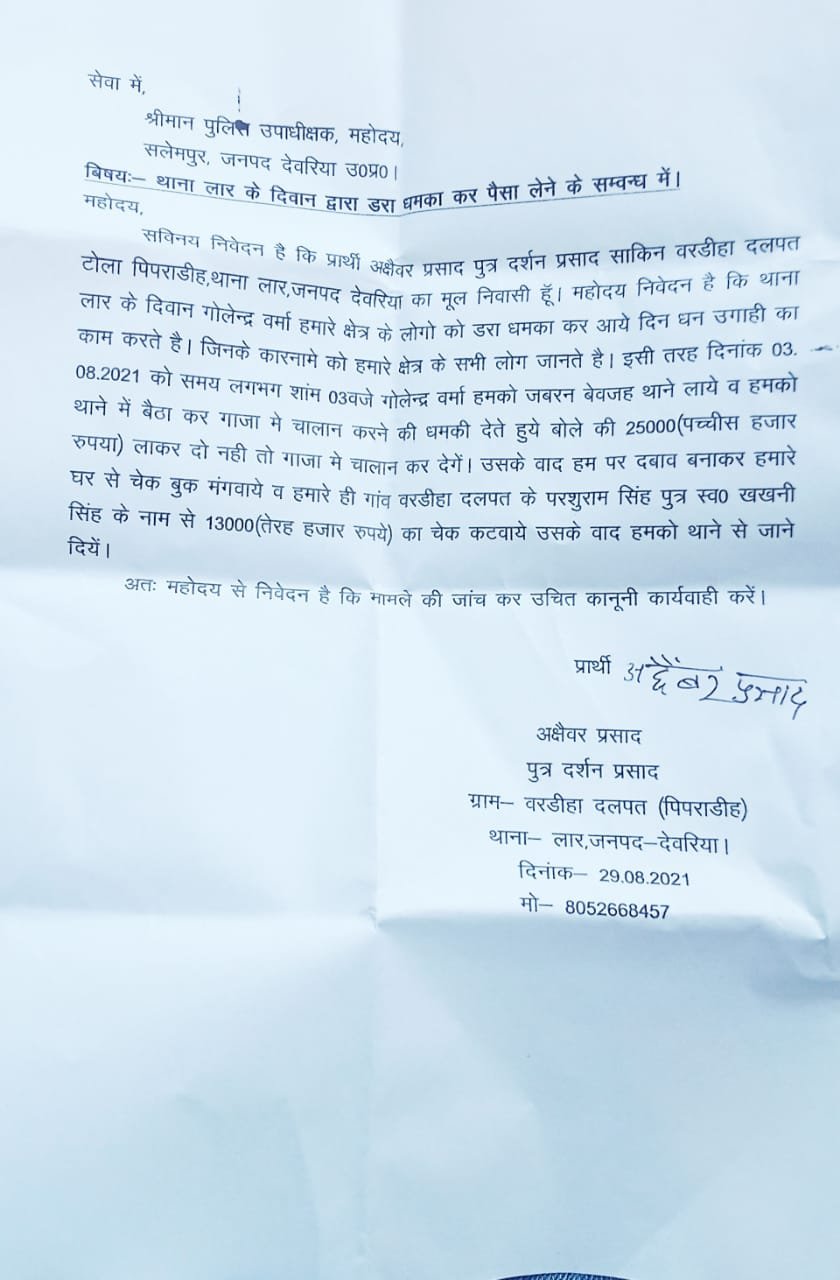 सेवा में,
श्रीमान पुलिस उपाधीक्षक, महोदय,
सलेमपुर, जनपद देवरिया उ0प्र0।
बिषयः– थाना लार के दिवान द्वारा डरा धमका कर पैसा लेने के सम्वन्ध में।
महोदय,
सविनय निवेदन है कि प्रार्थी अक्षैवर प्रसाद पुत्र दर्शन प्रसाद साकिन वरडीहा दलपत
टोला पिपराडीह,थाना लार,जनपद देवरिया का मूल निवासी हूँ। महोदय निवेदन है कि थाना
लार के दिवान गोलेन्द्र वर्मा हमारे क्षेत्र के लोगो को डरा धमका कर आये दिन धन उगाही का
काम करते है। जिनके कारनामे को हमारे क्षेत्र के सभी लोग जानते है। इसी तरह दिनांक 03.
08.2021 को समय लगभग शांम 03वजे गोलेन्द्र वर्मा हमको जबरन बेवजह थाने लाये व हमको
थाने में बैठा कर गाजा मे चालान करने की धमकी देते हुये बोले की 25000(पच्चीस हजार
रुपया) लाकर दो नही तो गाजा मे चालान कर देगें। उसके वाद हम पर दबाव बनाकर हमारे
घर से चेक बुक मंगवाये व हमारे ही गांव वरडीहा दलपत के परशुराम सिंह पुत्र स्व0 खखनी
सिंह के नाम से 13000(तेरह हजार रुपये) का चेक कटवाये उसके वाद हमको थाने से जाने
दियें।
अतः महोदय से निवेदन है कि मामले की जांच कर उचित कानूनी कार्यवाही करें।
प्रार्थी अछैबर प्रसाद
अक्षैवर प्रसाद
पुत्र दर्शन प्रसाद
ग्राम– वरडीहा दलपत (पिपराडीह)
थाना– लार,जनपद–देवरिया।
दिनांक– 29.08.2021
मो– 8052668457